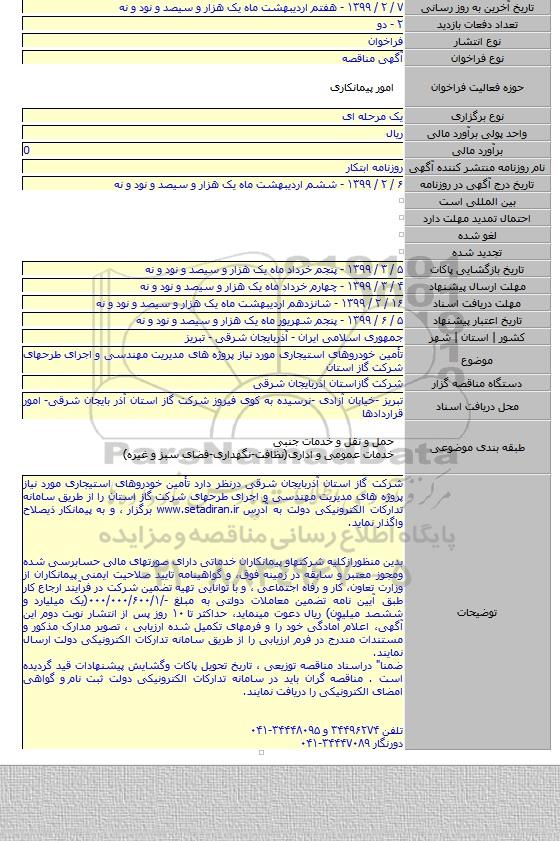 تاریخ آخرین به روز رسانی ۷ / ۲ / ۱۳۹۹ - هفتم اردیبهشت ماه یک هزار و سیصد و نود و نه
تعداد دفعات بازدید ۲ - دو
نوع انتشار فراخوان
نوع فراخوان آگهی مناقصه
حوزه فعالیت فراخوان امور پیمانکاری
نوع برگزاری یک مرحله ای
واحد پولی برآورد مالی ریال
برآورد مالی 0
نام روزنامه منتشر کننده آگهی روزنامه ابتکار
تاریخ درج آگهی در روزنامه ۶ / ۲ / ۱۳۹۹ - ششم اردیبهشت ماه یک هزار و سیصد و نود و نه
بین المللی است
احتمال تمدید مهلت دارد
لغو شده
تجدید شده
تاریخ بازگشایی پاکات ۵ / ۳ / ۱۳۹۹ - پنجم خرداد ماه یک هزار و سیصد و نود و نه
مهلت ارسال پیشنهاد ۴ / ۳ / ۱۳۹۹ - چهارم خرداد ماه یک هزار و سیصد و نود و نه
مهلت دریافت اسناد ۱۶ / ۲ / ۱۳۹۹ - شانزدهم اردیبهشت ماه یک هزار و سیصد و نود و نه
تاریخ اعتبار پیشنهاد ۵ / ۶ / ۱۳۹۹ - پنجم شهریور ماه یک هزار و سیصد و نود و نه
کشور | استان | شهر جمهوری اسلامی ایران - آذربایجان شرقی - تبریز
موضوع تأمین خودروهای استیجاری مورد نیاز پروژه های مدیریت مهندسی و اجرای طرحهای
شرکت گاز استان
دستگاه مناقصه گزار شرکت گازاستان اذربایجان شرقی
محل دریافت اسناد تبریز -خیابان آزادی -نرسیده به کوی فیروز شرکت گاز استان آذر بایجان شرقی- امور
قراردادها
طبقه بندی موضوعی حمل و نقل و خدمات جنبی
خدمات عمومی و اداری(نظافت-نگهداری-فضای سبز و غیره)
توضیحات شرکت گاز استان آذربایجان شرقی درنظر دارد تأمین خودروهای استیجاری مورد نیاز
پروژه های مدیریت مهندسی و اجرای طرحهای شرکت گاز استان را از طریق سامانه
تدارکات الکترونیکی دولت به آدرس www.setadiran.ir برگزار ، و به پیمانکار ذیصلاح
واگذار نماید.
بدین منظورازکلیه شرکتهاو پیمانکاران خدماتی دارای صورتهای مالی حسابرسی شده
ومجوز معتبر و سابقه در زمینه فوق، و گواهینامه تایید صلاحیت ایمنی پیمانکاران از
وزارت تعاون، کار و رفاه اجتماعی ، و با توانایی تهیه تضمین شرکت در فرایند ارجاع کار
طبق آیین نامه تضمین معاملات دولتی به مبلغ -/۰۰۰/۰۰۰/۶۰۰/۱(یک میلیارد و
ششصد میلیون) ریال دعوت مینماید، حداکثر تا ۱۰ روز پس از انتشار نوبت دوم این
آگهی، اعلام آمادگی خود را و فرمهای تکمیل شده ارزیابی ، تصویر مدارک مذکور و
مستندات مندرج در فرم ارزیابی را از طریق سامانه تدارکات الکترونیکی دولت ارسال
نمایند.
ضمنا" دراسناد مناقصه توزیعی ، تاریخ تحویل پاکات وگشایش پیشنهادات قید گردیده
است . مناقصه گران باید در سامانه تدارکات الکترونیکی دولت ثبت نام و گواهی
امضای الکترونیکی را دریافت نمایند.
تلفن ۳۴۴۹۶۲۷۴ و ۳۴۴۴۸۰۹۵-۰۴۱
دورنگار ۳۴۴۴۷۰۸۹-۰۴۱
ParsNamadData
پایگاه اطلاع رسانی مناقصه و مزایده